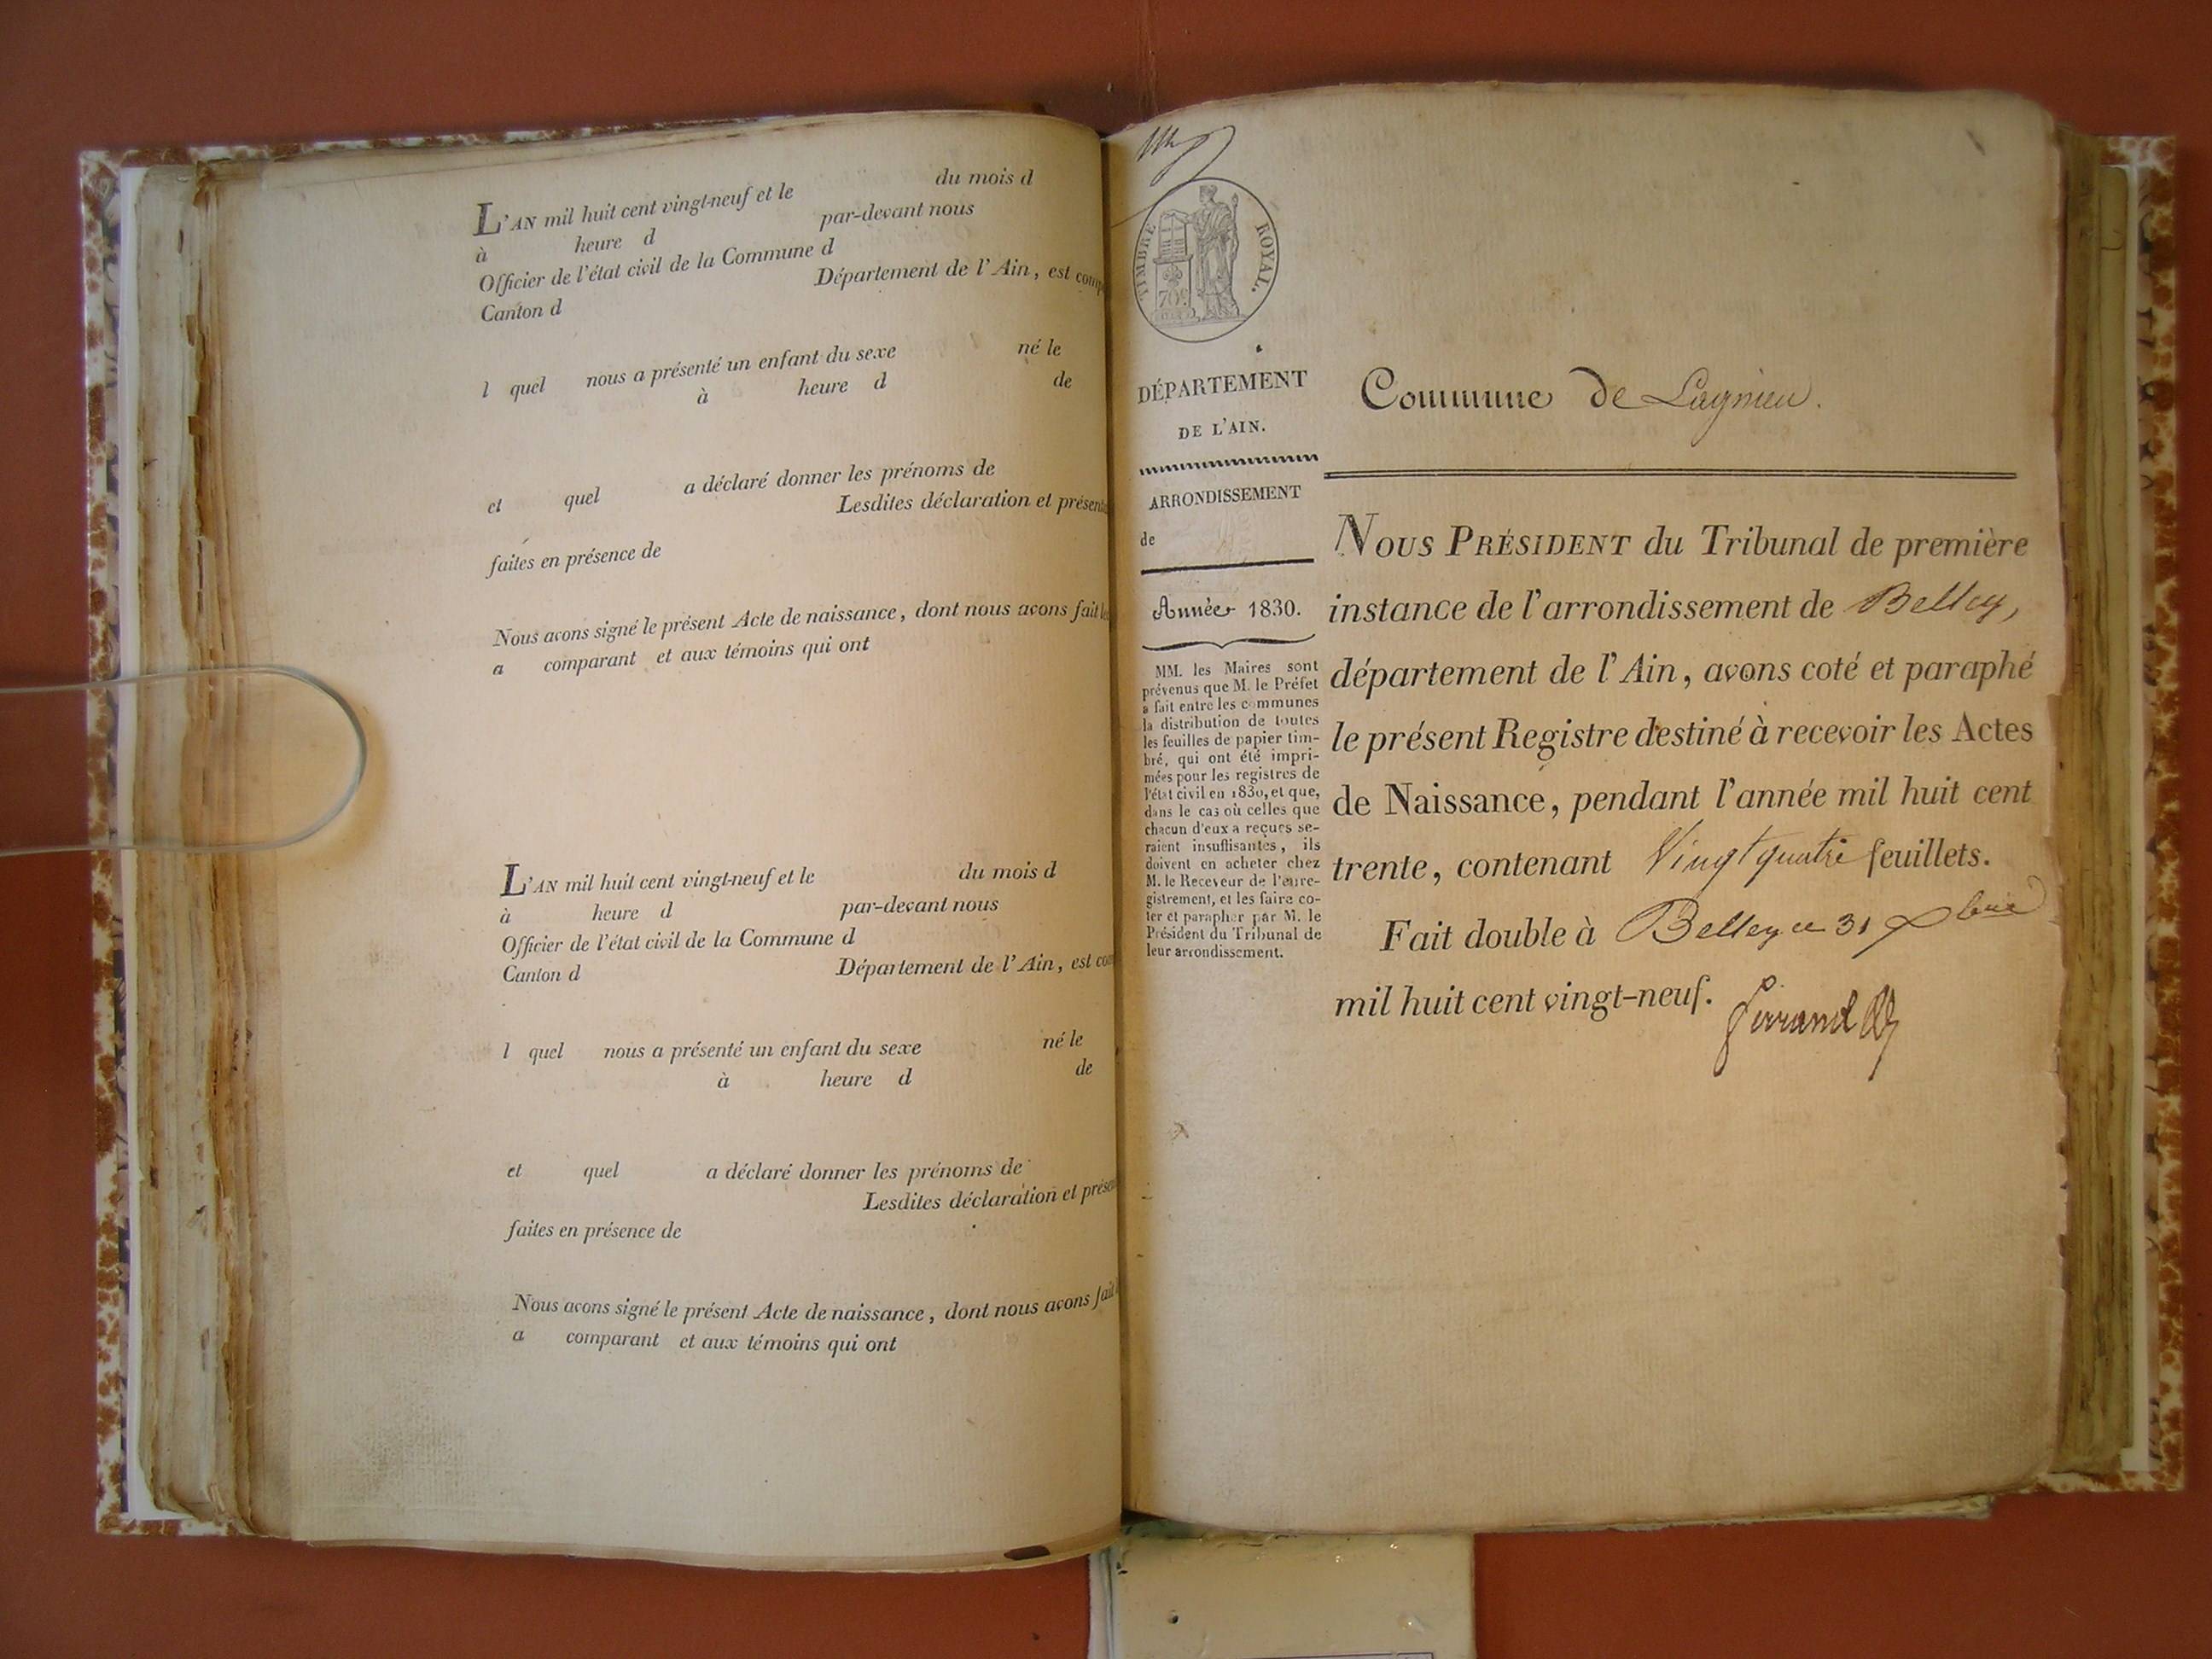 L'AN mil huit cent vingt-neuf et le du mois d
à heure d par-devant nous
Officier de l'état civil de la Commune d
Canton d Département de l'Ain, est comp
l quel nous a présenté un enfant du sexe né le
à heure d de
et quel a déclaré donner les prénoms de
Lesdites déclaration et présent
faites en présence de
Nous avons signé le présent Acte de naissance, dont nous avons fait le
a comparant et aux témoins qui ont
L'AN mil huit cent vingt-neuf et le du mois d
à heure d par-devant nous
Officier de l'état civil de la Commune d
Canton d Département de l'Ain, est com
l quel nous a présenté un enfant du sexe né le
à heure d de
et quel a déclaré donner les prénoms de
Lesdites déclaration et présen
faites en présence de
Nous avons signé le présent Acte de naissance, dont nous avons fait
a comparant et aux témoins qui ont
TIMBRE ROYAL.
70c
DÉPARTEMENT
DE L'AIN.
ARRONDISSEMENT
de
Année 1830.
MM. les Maires sont
prévenus que M. le Préfet
a fait entre les communes
la distribution de toutes
les feuilles de papier tim-
bré, qui ont été impri-
mées pour les registres de
l'état civil en 1830, et que,
dans le cas où celles que
chacun d'eux a reçues se-
raient insuffisantes, ils
doivent en acheter chez
M. le Receveur de l'enre-
gistrement, et les faire co-
ter et parapher par M. le
Président du Tribunal de
leur arrondissement.
Commune de Lagnieu.
NOUS PRÉSIDENT du Tribunal de première
instance de l'arrondissement de Belley,
département de l'Ain, avons coté et paraphé
le présent Registre destiné à recevoir les Actes
de Naissance, pendant l'année mil huit cent
trente, contenant Vingt quatre feuillets.
Fait double à Belley ce 31 Xbre
mil huit cent vingt-neuf.